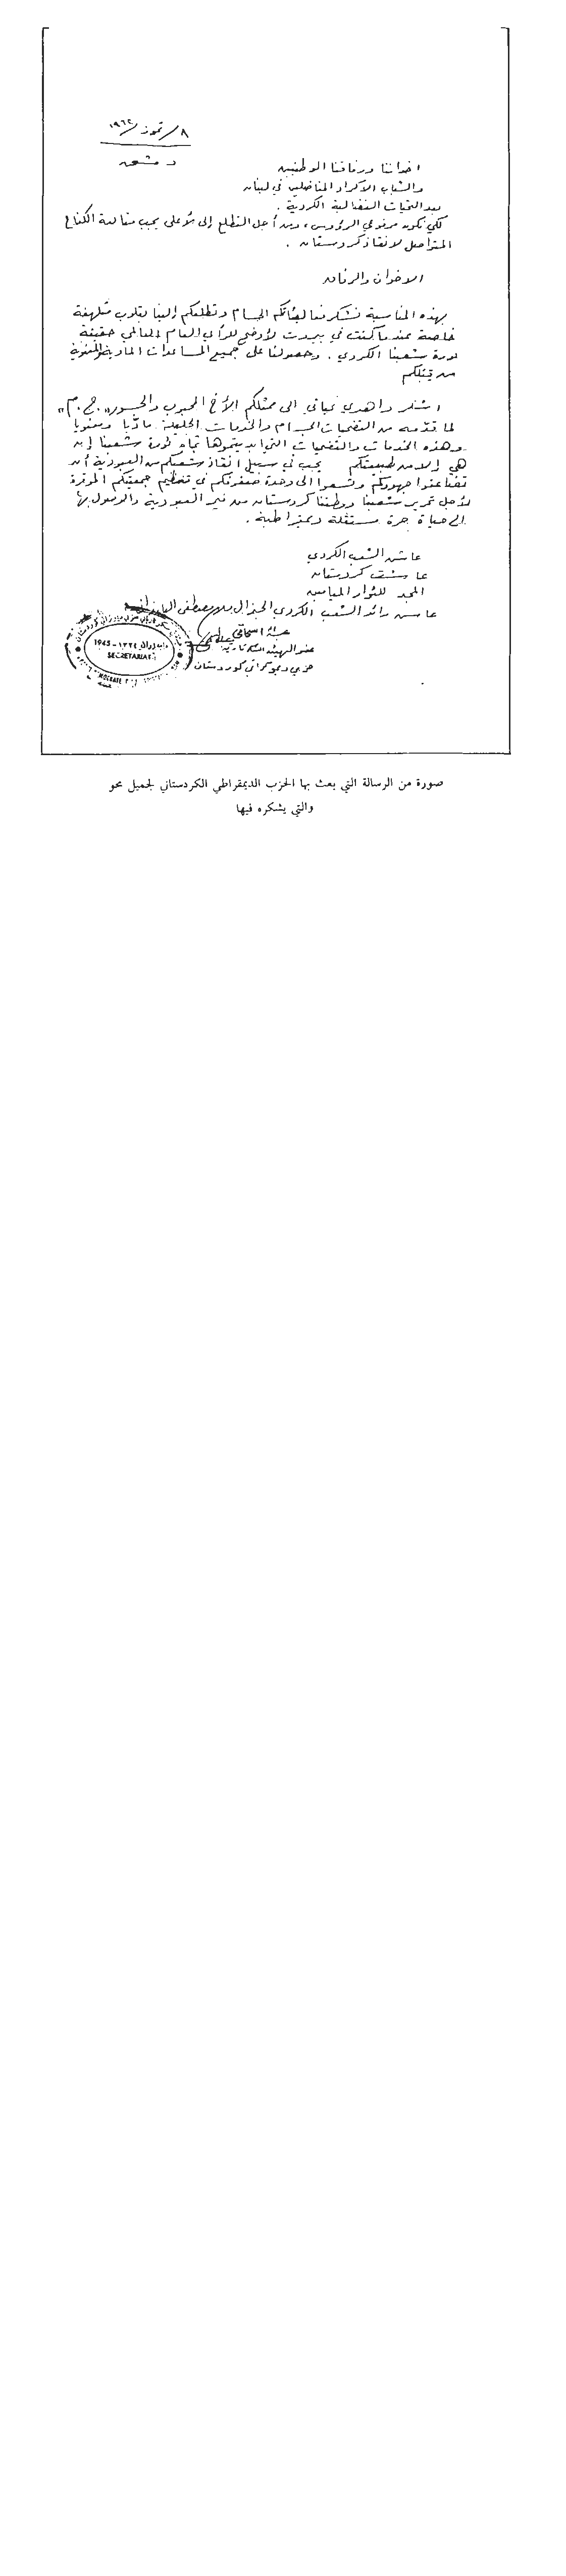 ٨/تموز/١٩٦٢
دمشق
اخواننا ورفاقنا الوطنيين
والشباب الأكراد المناضلين في لبنان
بعد التحيات النضالية الكردية .
لكي نكون مرفوعي الرؤوس، ومن أجل التطلع إلى الأعلى يجب متابعة الكفاح
المتواصل لانقاذ كردستان .
الاخوان والرفاق
بهذه المناسبة نشكر نضالاتكم الجسام وتطلعكم إلينا بقلوب متلهفة
خاصة عندما كنت في بيروت لأوضح للرأي العام العالمي حقيقة
ثورة شعبنا الكردي . وحصولنا على جميع المساعدات المادية والمعنوية
من قبلكم
اشكر واهدي تحياتي الى ممثلكم الأخ المحبوب والجسور "ج . م"
لما قدّمه من التضحيات الجسام والخدمات الجليلة مادّيا ومعنويا
وهذه الخدمات والتضحيات التي أبديتموها تجاه ثورة شعبنا إن
هي إلا من طبيعتكم يجب في سبيل انقاذ شعبكم من العبودية أن
تضاعفوا جهودكم وتسعوا الى وحدة صفوفكم في تنظيم جمعيتكم الموقرة
لأجل تحرير شعبنا ووطننا كردستان من نير العبودية والوصول بها
إلى حياة حرة مستقلة ديمقراطية .
عاش الشعب الكردي
عاشت كردستان
المجد للثوار الميامين
عاش رائد الشعب الكردي الجنرال ملا مصطفى البارزاني
عضو الهيئة السكرتارية
حزبي ديموكراتي كوردستان
1945 - ١٣٢٤
SECRETARIAT
صورة من الرسالة التي بعث بها الحزب الديمقراطي الكردستاني لجميل محو
والتي يشكره فيها